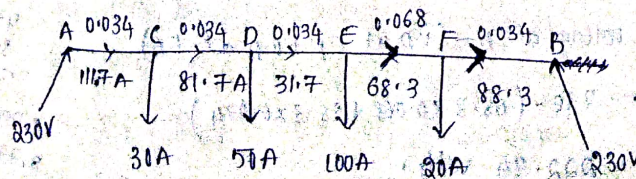 A 0.034 C 0.034 D 0.034 E 0.068 F 0.034 B
111.7A 81.7A 31.7 68.3 88.3
230V 30A 50A 100A 20A 230V